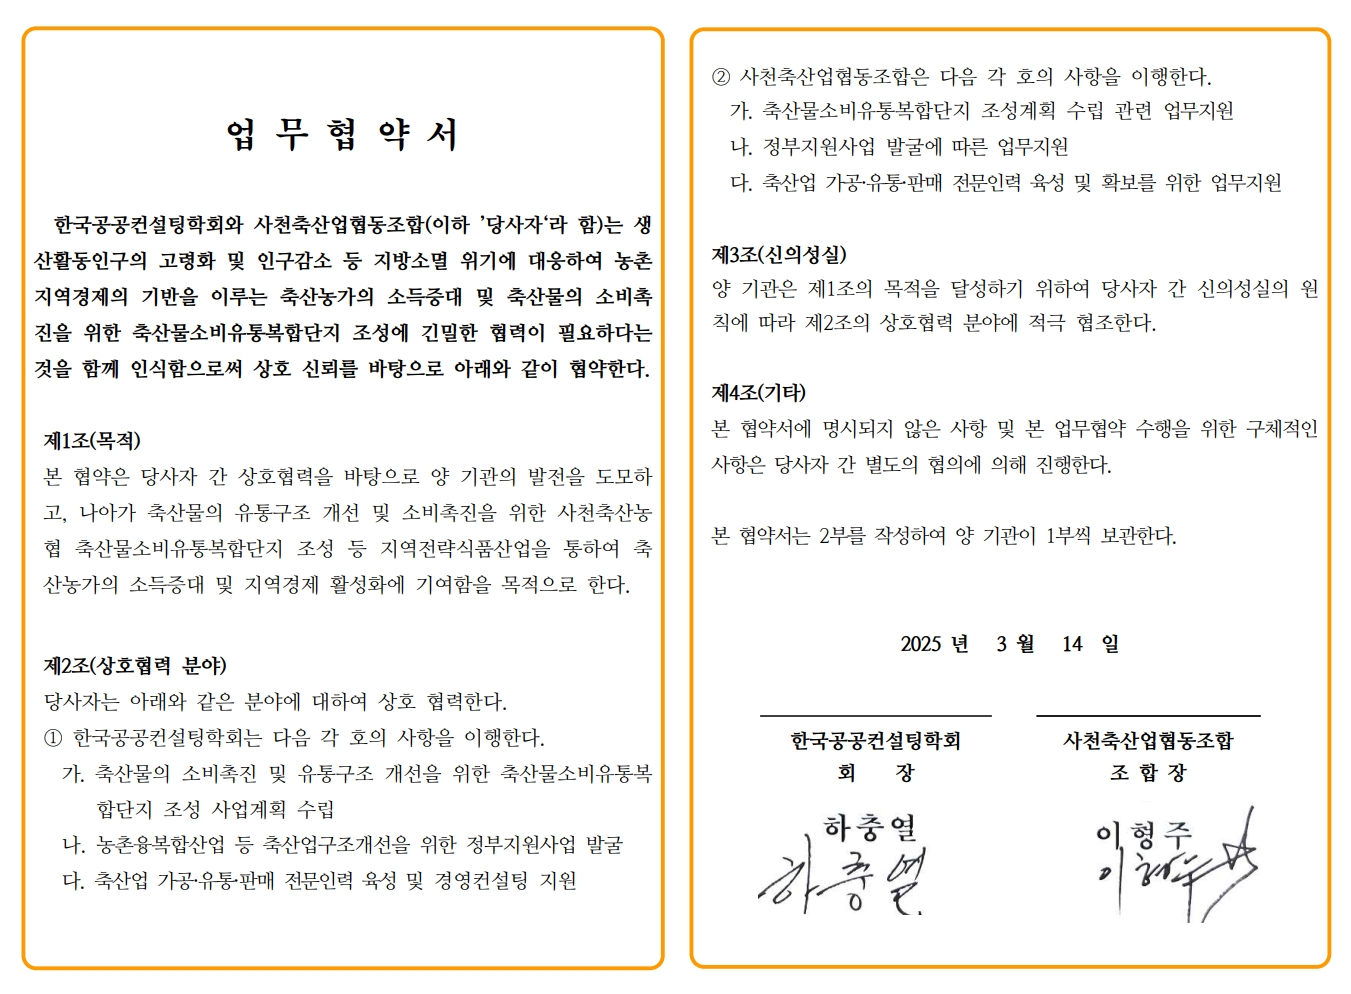 업 무 협 약 서
한국공공컨설팅학회와 사천축산업협동조합(이하 ’당사자‘라 함)는 생
산활동인구의 고령화 및 인구감소 등 지방소멸 위기에 대응하여 농촌
지역경제의 기반을 이루는 축산농가의 소득증대 및 축산물의 소비촉
진을 위한 축산물소비유통복합단지 조성에 긴밀한 협력이 필요하다는
것을 함께 인식함으로써 상호 신뢰를 바탕으로 아래와 같이 협약한다.
제1조(목적)
본 협약은 당사자 간 상호협력을 바탕으로 양 기관의 발전을 도모하
고, 나아가 축산물의 유통구조 개선 및 소비촉진을 위한 사천축산농
협 축산물소비유통복합단지 조성 등 지역전략식품산업을 통하여 축
산농가의 소득증대 및 지역경제 활성화에 기여함을 목적으로 한다.
제2조(상호협력 분야)
당사자는 아래와 같은 분야에 대하여 상호 협력한다.
① 한국공공컨설팅학회는 다음 각 호의 사항을 이행한다.
가. 축산물의 소비촉진 및 유통구조 개선을 위한 축산물소비유통복
합단지 조성 사업계획 수립
나. 농촌융복합산업 등 축산업구조개선을 위한 정부지원사업 발굴
다. 축산업 가공·유통·판매 전문인력 육성 및 경영컨설팅 지원
② 사천축산업협동조합은 다음 각 호의 사항을 이행한다.
가. 축산물소비유통복합단지 조성계획 수립 관련 업무지원
나. 정부지원사업 발굴에 따른 업무지원
다. 축산업 가공·유통·판매 전문인력 육성 및 확보를 위한 업무지원
제3조(신의성실)
양 기관은 제1조의 목적을 달성하기 위하여 당사자 간 신의성실의 원
칙에 따라 제2조의 상호협력 분야에 적극 협조한다.
제4조(기타)
본 협약서에 명시되지 않은 사항 및 본 업무협약 수행을 위한 구체적인
사항은 당사자 간 별도의 협의에 의해 진행한다.
본 협약서는 2부를 작성하여 양 기관이 1부씩 보관한다.
2025 년 3 월 14 일
한국공공컨설팅학회
회 장
하충열
하충열
사천축산업협동조합
조 합 장
이형주
이형주